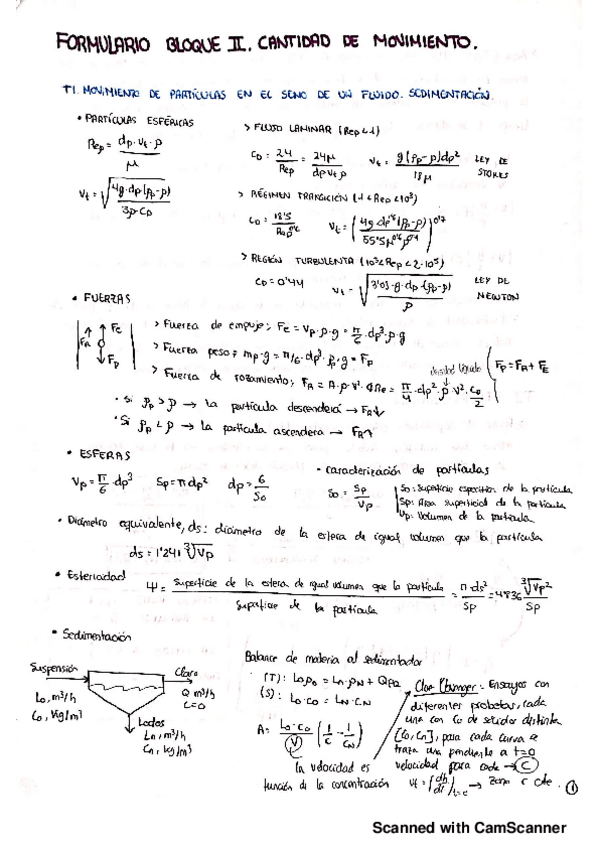 FORMULARIO BLOQUE II. CANTIDAD DE MOVIMIENTO.
T1. MOVIMIENTO DE PARTÍCULAS EN EL SENO DE UN FLUIDO. SEDIMENTACIÓN.
• PARTÍCULAS ESFÉRICAS
Rep = dp·vt·ρ / μ
vt = √(4g·dp(ρp-ρ) / 3ρ·CD)
> FLUJO LAMINAR (Rep<1)
CD = 24/Rep = 24μ/dp vt ρ   vt = g(ρp-ρ)dp² / 18μ   LEY DE STOKES
> RÉGIMEN TRANSICIÓN (1<Rep<10³)
CD = 18'5/Rep^0'6   vt = (4g dp^1'6(ρp-ρ) / 55'5μ^0'6 ρ^0'4)^0'7
> REGIÓN TURBULENTA (10³<Rep<2·10⁵)
CD = 0'44   vt = √(3'03·g·dp·(ρp-ρ) / ρ)   LEY DE NEWTON
• FUERZAS
FR FE FP
> Fuerza de empuje; FE = Vp·ρ·g = π/6·dp³·ρ·g
> Fuerza peso; mp·g = π/6·dp³·ρp·g = FP
> Fuerza de rozamiento; FR = A·ρ·v²· = π/4·dp²·ρ·v²·CD/2
densidad líquido
FP = FR + FE
· Si ρp > ρ → la partícula descenderá → FR↓
· Si ρp < ρ → la partícula ascendera → FR↑
• ESFERAS
Vp = π/6·dp³   Sp = π dp²   dp = 6/So
• Caracterización de partículas
So = Sp/Vp
So: Superficie específica de la partícula
Sp: Área superficial de la partícula
Vp: Volumen de la partícula
• Diámetro equivalente, ds: diámetro de la esfera de igual volumen que la partícula
ds = 1'241 ∛Vp
• Esfericidad
Ψ = Superficie de la esfera de igual volumen que la partícula / Superficie de la partícula = π·ds²/Sp = 4'836 ∛Vp²/Sp
• Sedimentación
Suspensión
Lo, m³/h
Co, kg/m³
Claro
Q m³/h
C=0
Lodos
Ln, m³/h
Cn, kg/m³
Balance de material al sedimentador
(T): Lo·ρo = Ln·ρN + Qρa
(S): Lo·Co = LN·CN
A = Lo·Co/V (1/C - 1/CN)
la velocidad es
función de la concentración
Coe Clevenger: Ensayos con
diferentes probetas, cada
una con Co de sólidos distinta
[Co, Cn], para cada curva se
traza una pendiente a t=0
velocidad para cada → C
vt = (dh/dt)t=0 → zona c cte.
1
Scanned with CamScanner